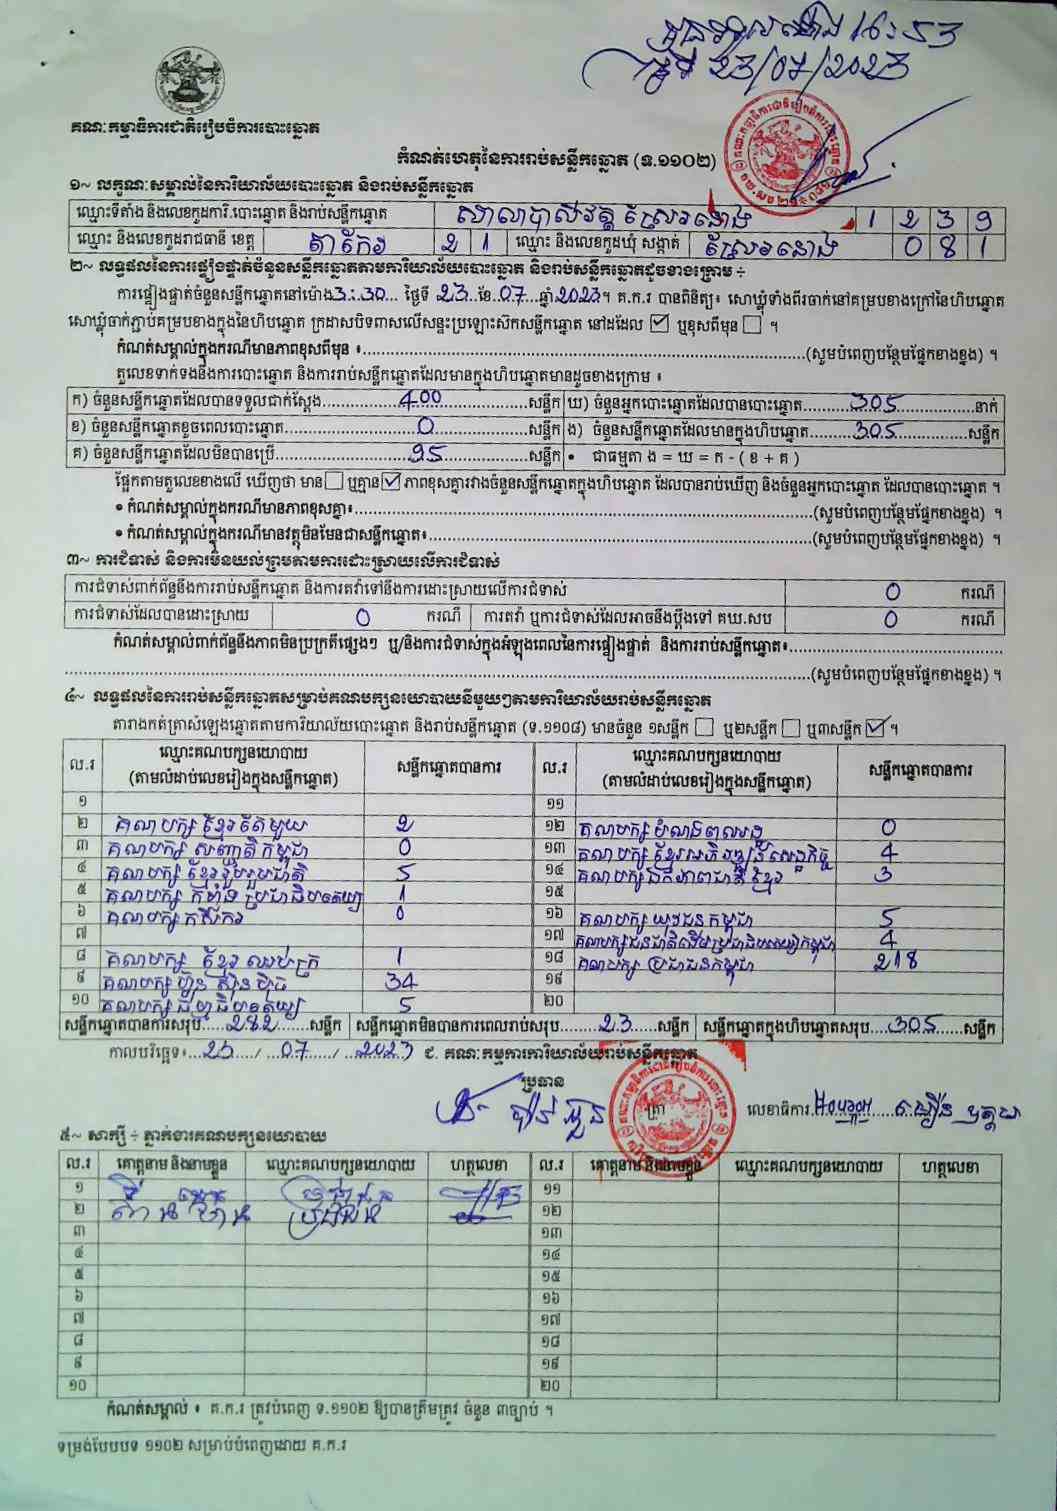 ម៉ោង 16:53
ថ្ងៃទី 23/07/2023
គណៈកម្មាធិការជាតិរៀបចំការបោះឆ្នោត
កំណត់ហេតុនៃការរាប់សន្លឹកឆ្នោត (ទ.១១០២)
១~ លក្ខណៈសម្គាល់នៃការិយាល័យបោះឆ្នោត និងរាប់សន្លឹកឆ្នោត
ឈ្មោះទីតាំង និងលេខកូដការិ.បោះឆ្នោត និងរាប់សន្លឹកឆ្នោត សាលាបាលីវត្ត ស្រែរនោង 1 2 3 9
ឈ្មោះ និងលេខកូដរាជធានី ខេត្ត តាកែវ 2 1 ឈ្មោះ និងលេខកូដឃុំ សង្កាត់ ស្រែរនោង 0 8 1
២~ លទ្ធផលនៃការផ្ទៀងផ្ទាត់ចំនួនសន្លឹកឆ្នោតតាមការិយាល័យបោះឆ្នោត និងរាប់សន្លឹកឆ្នោតដូចខាងក្រោម ÷
ការផ្ទៀងផ្ទាត់ចំនួនសន្លឹកឆ្នោតនៅម៉ោង 3:30 ថ្ងៃទី 23 ខែ 07 ឆ្នាំ 2023។ គ.ក.រ បានពិនិត្យ៖ សោឃ្លុំទាំងពីរចាក់នៅគម្របខាងក្រៅនៃហិបឆ្នោត
សោឃ្លុំចាក់ភ្ជាប់គម្របខាងក្នុងនៃហិបឆ្នោត ក្រដាសបិទពាសលើសន្ទះប្រឡោះស៊កសន្លឹកឆ្នោត នៅដដែល ☑ ឬខុសពីមុន ☐ ។
កំណត់សម្គាល់ក្នុងករណីមានភាពខុសពីមុន ៖ (សូមបំពេញបន្ថែមផ្នែកខាងខ្នង) ។
តួលេខទាក់ទងនឹងការបោះឆ្នោត និងការរាប់សន្លឹកឆ្នោតដែលមានក្នុងហិបឆ្នោតមានដូចខាងក្រោម ៖
ក) ចំនួនសន្លឹកឆ្នោតដែលបានទទួលជាក់ស្តែង 400 សន្លឹក ឃ) ចំនួនអ្នកបោះឆ្នោតដែលបានបោះឆ្នោត 305 នាក់
ខ) ចំនួនសន្លឹកឆ្នោតខូចពេលបោះឆ្នោត 0 សន្លឹក ង) ចំនួនសន្លឹកឆ្នោតដែលមានក្នុងហិបឆ្នោត 305 សន្លឹក
គ) ចំនួនសន្លឹកឆ្នោតដែលមិនបានប្រើ 95 សន្លឹក • ជាធម្មតា ង = ឃ = ក - ( ខ + គ )
ផ្អែកតាមតួលេខខាងលើ ឃើញថា មាន ☐ ឬគ្មាន ☑ ភាពខុសគ្នារវាងចំនួនសន្លឹកឆ្នោតក្នុងហិបឆ្នោត ដែលបានរាប់ឃើញ និងចំនួនអ្នកបោះឆ្នោត ដែលបានបោះឆ្នោត ។
• កំណត់សម្គាល់ក្នុងករណីមានភាពខុសគ្នា៖ (សូមបំពេញបន្ថែមផ្នែកខាងខ្នង) ។
• កំណត់សម្គាល់ក្នុងករណីមានវត្ថុមិនមែនជាសន្លឹកឆ្នោត៖ (សូមបំពេញបន្ថែមផ្នែកខាងខ្នង) ។
៣~ ការជំទាស់ និងការមិនយល់ព្រមតាមការដោះស្រាយលើការជំទាស់
ការជំទាស់ពាក់ព័ន្ធនឹងការរាប់សន្លឹកឆ្នោត និងការតវ៉ាទៅនឹងការដោះស្រាយលើការជំទាស់ 0 ករណី
ការជំទាស់ដែលបានដោះស្រាយ 0 ករណី ការតវ៉ា ឬការជំទាស់ដែលអាចនឹងប្តឹងទៅ គឃ.សប 0 ករណី
កំណត់សម្គាល់ពាក់ព័ន្ធនឹងភាពមិនប្រក្រតីផ្សេងៗ ឬ/និងការជំទាស់ក្នុងអំឡុងពេលនៃការផ្ទៀងផ្ទាត់ និងការរាប់សន្លឹកឆ្នោត៖
(សូមបំពេញបន្ថែមផ្នែកខាងខ្នង) ។
៤~ លទ្ធផលនៃការរាប់សន្លឹកឆ្នោតសម្រាប់គណបក្សនយោបាយនីមួយៗតាមការិយាល័យរាប់សន្លឹកឆ្នោត
តារាងកត់ត្រាសំឡេងឆ្នោតតាមការិយាល័យបោះឆ្នោត និងរាប់សន្លឹកឆ្នោត (ទ.១១០៨) មានចំនួន ១សន្លឹក ☐ ឬ២សន្លឹក ☐ ឬ៣សន្លឹក ☑ ។
ល.រ ឈ្មោះគណបក្សនយោបាយ (តាមលំដាប់លេខរៀងក្នុងសន្លឹកឆ្នោត) សន្លឹកឆ្នោតបានការ ល.រ ឈ្មោះគណបក្សនយោបាយ (តាមលំដាប់លេខរៀងក្នុងសន្លឹកឆ្នោត) សន្លឹកឆ្នោតបានការ
១ ១១
២ គណបក្ស ខ្មែរតែមួយ 2 ១២ គណបក្ស បំណងពលរដ្ឋ 0
៣ គណបក្ស សញ្ជាតិកម្ពុជា 0 ១៣ គណបក្ស ខ្មែរអភិវឌ្ឍន៍សេដ្ឋកិច្ច 4
៤ គណបក្ស ខ្មែររួបរួមជាតិ 5 ១៤ គណបក្ស ឯកភាពជាតិខ្មែរ 3
៥ គណបក្ស កម្លាំងប្រជាធិបតេយ្យ 1 ១៥
៦ គណបក្ស កសិករ 0 ១៦ គណបក្ស យុវជនកម្ពុជា 5
៧ ១៧ គណបក្សជនជាតិដើមប្រជាធិបតេយ្យកម្ពុជា 4
៨ គណបក្ស ខ្មែរឈប់ក្រ 1 ១៨ គណបក្ស ប្រជាជនកម្ពុជា 218
៩ គណបក្សហ៊្វុនស៊ិនប៉ិច 34 ១៩
១០ គណបក្ស ធម្មាធិបតេយ្យ 5 ២០
សន្លឹកឆ្នោតបានការសរុប 282 សន្លឹក សន្លឹកឆ្នោតមិនបានការពេលរាប់សរុប 23 សន្លឹក សន្លឹកឆ្នោតក្នុងហិបឆ្នោតសរុប 305 សន្លឹក
កាលបរិច្ឆេទ៖ 23 / 07 / 2023 ជ. គណៈកម្មការការិយាល័យរាប់សន្លឹកឆ្នោត
ប្រធាន
ត្រា លេខាធិការ
៥~ សាក្សី ÷ ភ្នាក់ងារគណបក្សនយោបាយ
ល.រ គោត្តនាម និងនាមខ្លួន ឈ្មោះគណបក្សនយោបាយ ហត្ថលេខា ល.រ គោត្តនាម និងនាមខ្លួន ឈ្មោះគណបក្សនយោបាយ ហត្ថលេខា
១ ១១
២ ១២
៣ ១៣
៤ ១៤
៥ ១៥
៦ ១៦
៧ ១៧
៨ ១៨
៩ ១៩
១០ ២០
កំណត់សម្គាល់ ៖ គ.ក.រ ត្រូវបំពេញ ទ.១១០២ ឱ្យបានត្រឹមត្រូវ ចំនួន ៣ច្បាប់ ។
ទម្រង់បែបបទ ១១០២ សម្រាប់បំពេញដោយ គ.ក.រ